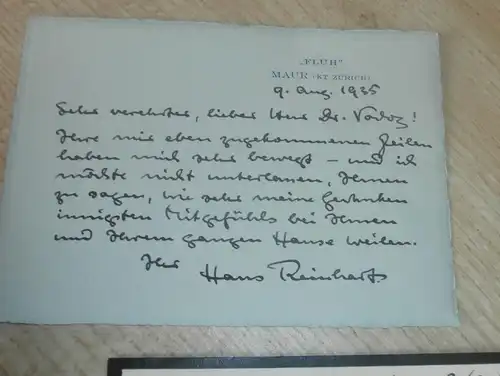 „FLUH"
MAUR (KT ZÜRICH)
9. Aug. 1935
Sehr verehrter, lieber Herr Dr. Vodoz!
Ihre mir eben zugekommenen Zeilen
haben mich sehr bewegt – und ich
möchte nicht unterlassen, Ihnen
zu sagen, wie sehr meine Gedanken
innigsten Mitgefühls bei Ihnen
und Ihrem ganzen Hause weilen.
Ihr
Hans Reinhart.